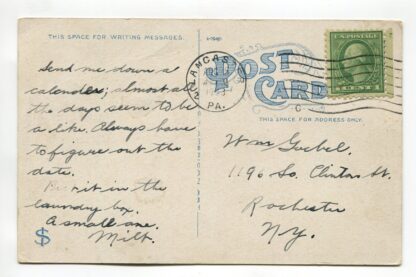 THIS SPACE FOR WRITING MESSAGES.
Send me down a
calender; almost all
the days seem to be
a like. Always have
to figure out the
date.
it in the
laundry box.
A small one.
Milt.
LANCAS
PA.
POST
CARD
THIS SPACE FOR ADDRESS ONLY.
U.S. POSTAGE
1 CENT 1
Wm Goebel.
1196 So. Clinton St.
Rochester
N.Y.